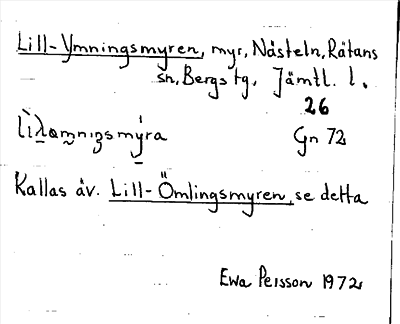 Lill-Ymningsmyren, myr, Nästeln, Rätans
sn, Bergs tg, Jämtl. l.
26
Gn 72
Kallas äv. Lill-Ömlingsmyren, se detta
Ewa Persson 1972